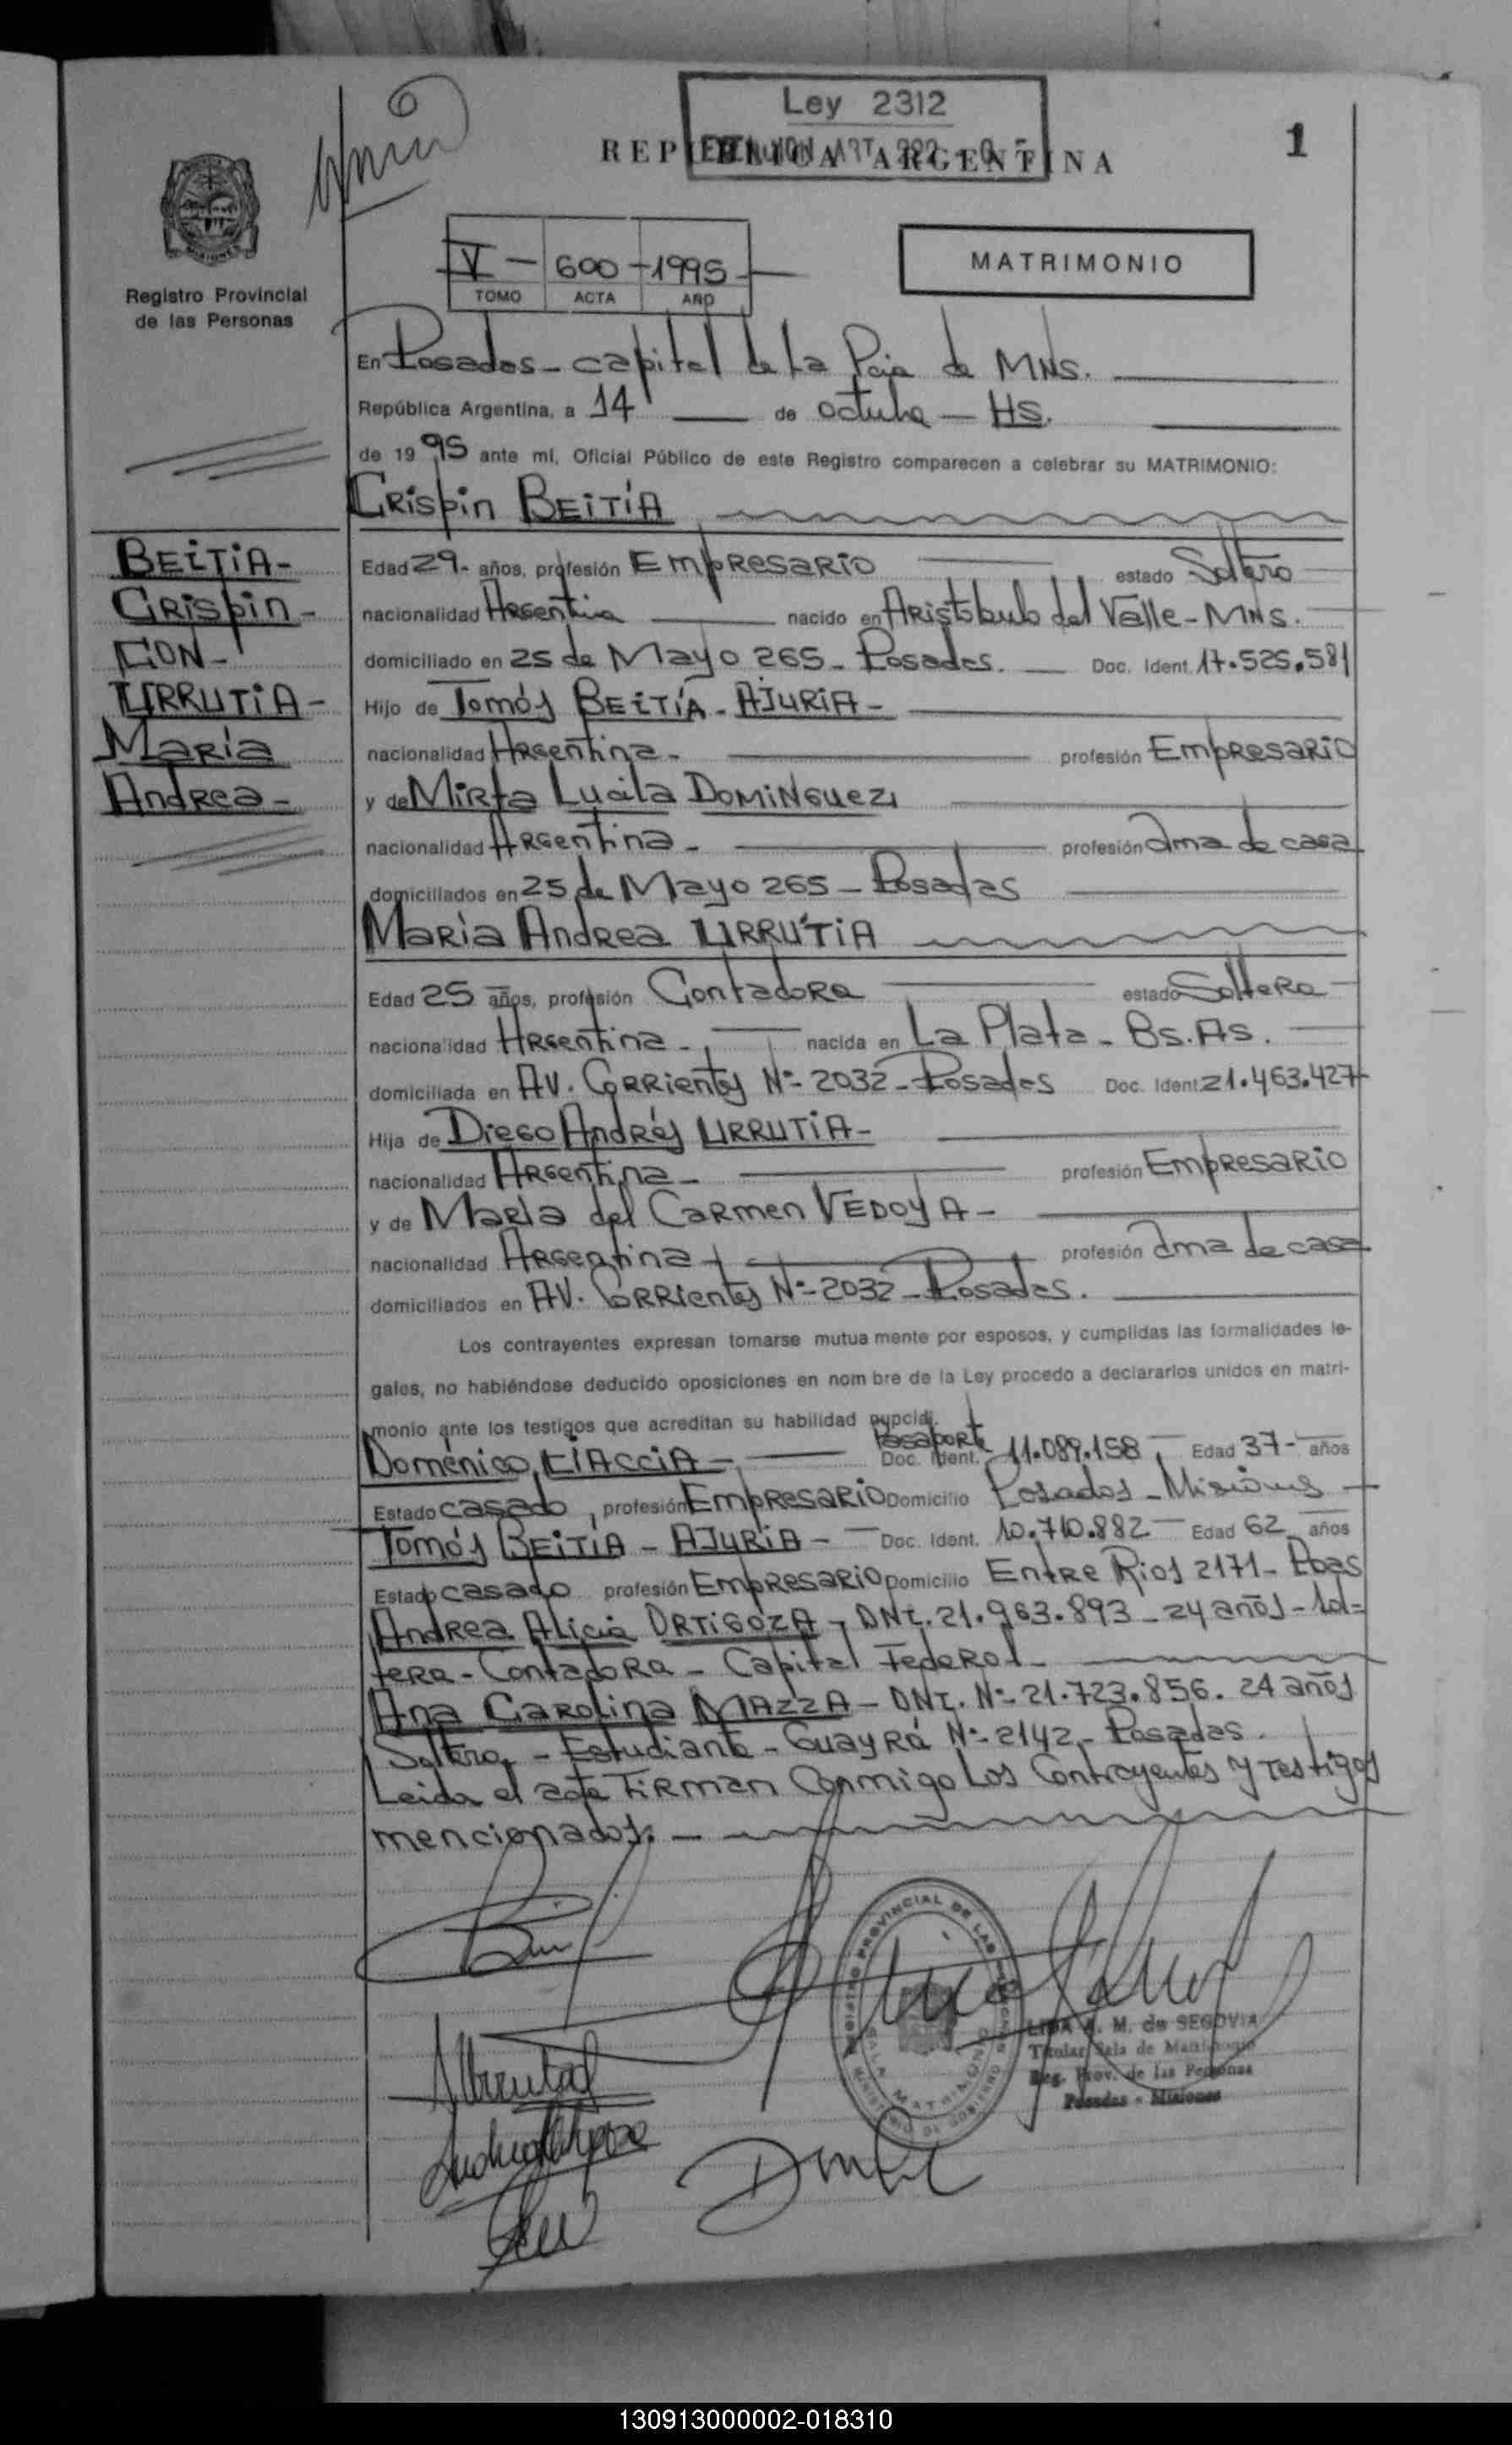 Ley 2312
REPUBLICA ARGENTINA
1
MISIONES
Registro Provincial
de las Personas
V - 600 - 1995 -
TOMO ACTA AÑO
MATRIMONIO
En Posadas - capital de la Pcia de MNS.
República Argentina, a 14 de octubre - HS.
de 1995 ante mí, Oficial Público de este Registro comparecen a celebrar su MATRIMONIO:
Crispin BEITÍA
BEITIA-
Crispin-
CON-
URRUTIA-
María
Andrea-
Edad 29- años, profesión Empresario estado Soltero
nacionalidad Argentina nacido en Aristobulo del Valle - MNS.
domiciliado en 25 de Mayo 265 - Posadas. Doc. Ident. 17.525.581
Hijo de Tomás BEITÍA - AJURIA -
nacionalidad Argentina - profesión Empresario
y de Mirta Lucila DOMINGUEZ
nacionalidad Argentina - profesión ama de casa
domiciliados en 25 de Mayo 265 - Posadas
María Andrea URRUTIA
Edad 25 años, profesión Contadora estado Soltera
nacionalidad Argentina - nacida en La Plata - Bs.As.
domiciliada en AV. Corrientes Nº- 2032 - Posadas Doc. Ident. 21.463.427
Hija de Diego Andrés URRUTIA -
nacionalidad Argentina - profesión Empresario
y de María del Carmen VEDOYA -
nacionalidad Argentina profesión ama de casa
domiciliados en AV. Corrientes Nº- 2032 - Posadas.
Los contrayentes expresan tomarse mutua mente por esposos, y cumplidas las formalidades le-
gales, no habiéndose deducido oposiciones en nom bre de la Ley procedo a declararlos unidos en matri-
monio ante los testigos que acreditan su habilidad nupcial.
Doménico LIACCIA - Pasaporte Doc. Ident. 11.089.158 Edad 37- años
Estado casado, profesión Empresario Domicilio Posadas - Misiones
Tomás BEITIA - AJURIA - Doc. Ident. 10.710.882 Edad 62 años
Estado casado profesión Empresario Domicilio Entre Rios 2171 - Pdas
Andrea Alicia ORTIGOZA - DNI. 21.963.893 - 24 años - sol=
tera - Contadora - Capital Federal -
Ana Carolina MAZZA - DNI. Nº- 21.723.856. 24 años
Soltera - Estudiante - Guayrá Nº- 2142 - Posadas.
Leida el acta Firman Conmigo Los Contrayentes y Testigos
mencionados. -
REGISTRO PROVINCIAL DE LAS PERSONAS
SALA MATRIMONIO
MINISTERIO DE GOBIERNO
M. de SEGOVIA
Titular Sala de Matrimonio
Reg. Prov. de las Personas
Posadas - Misiones
130913000002-018310